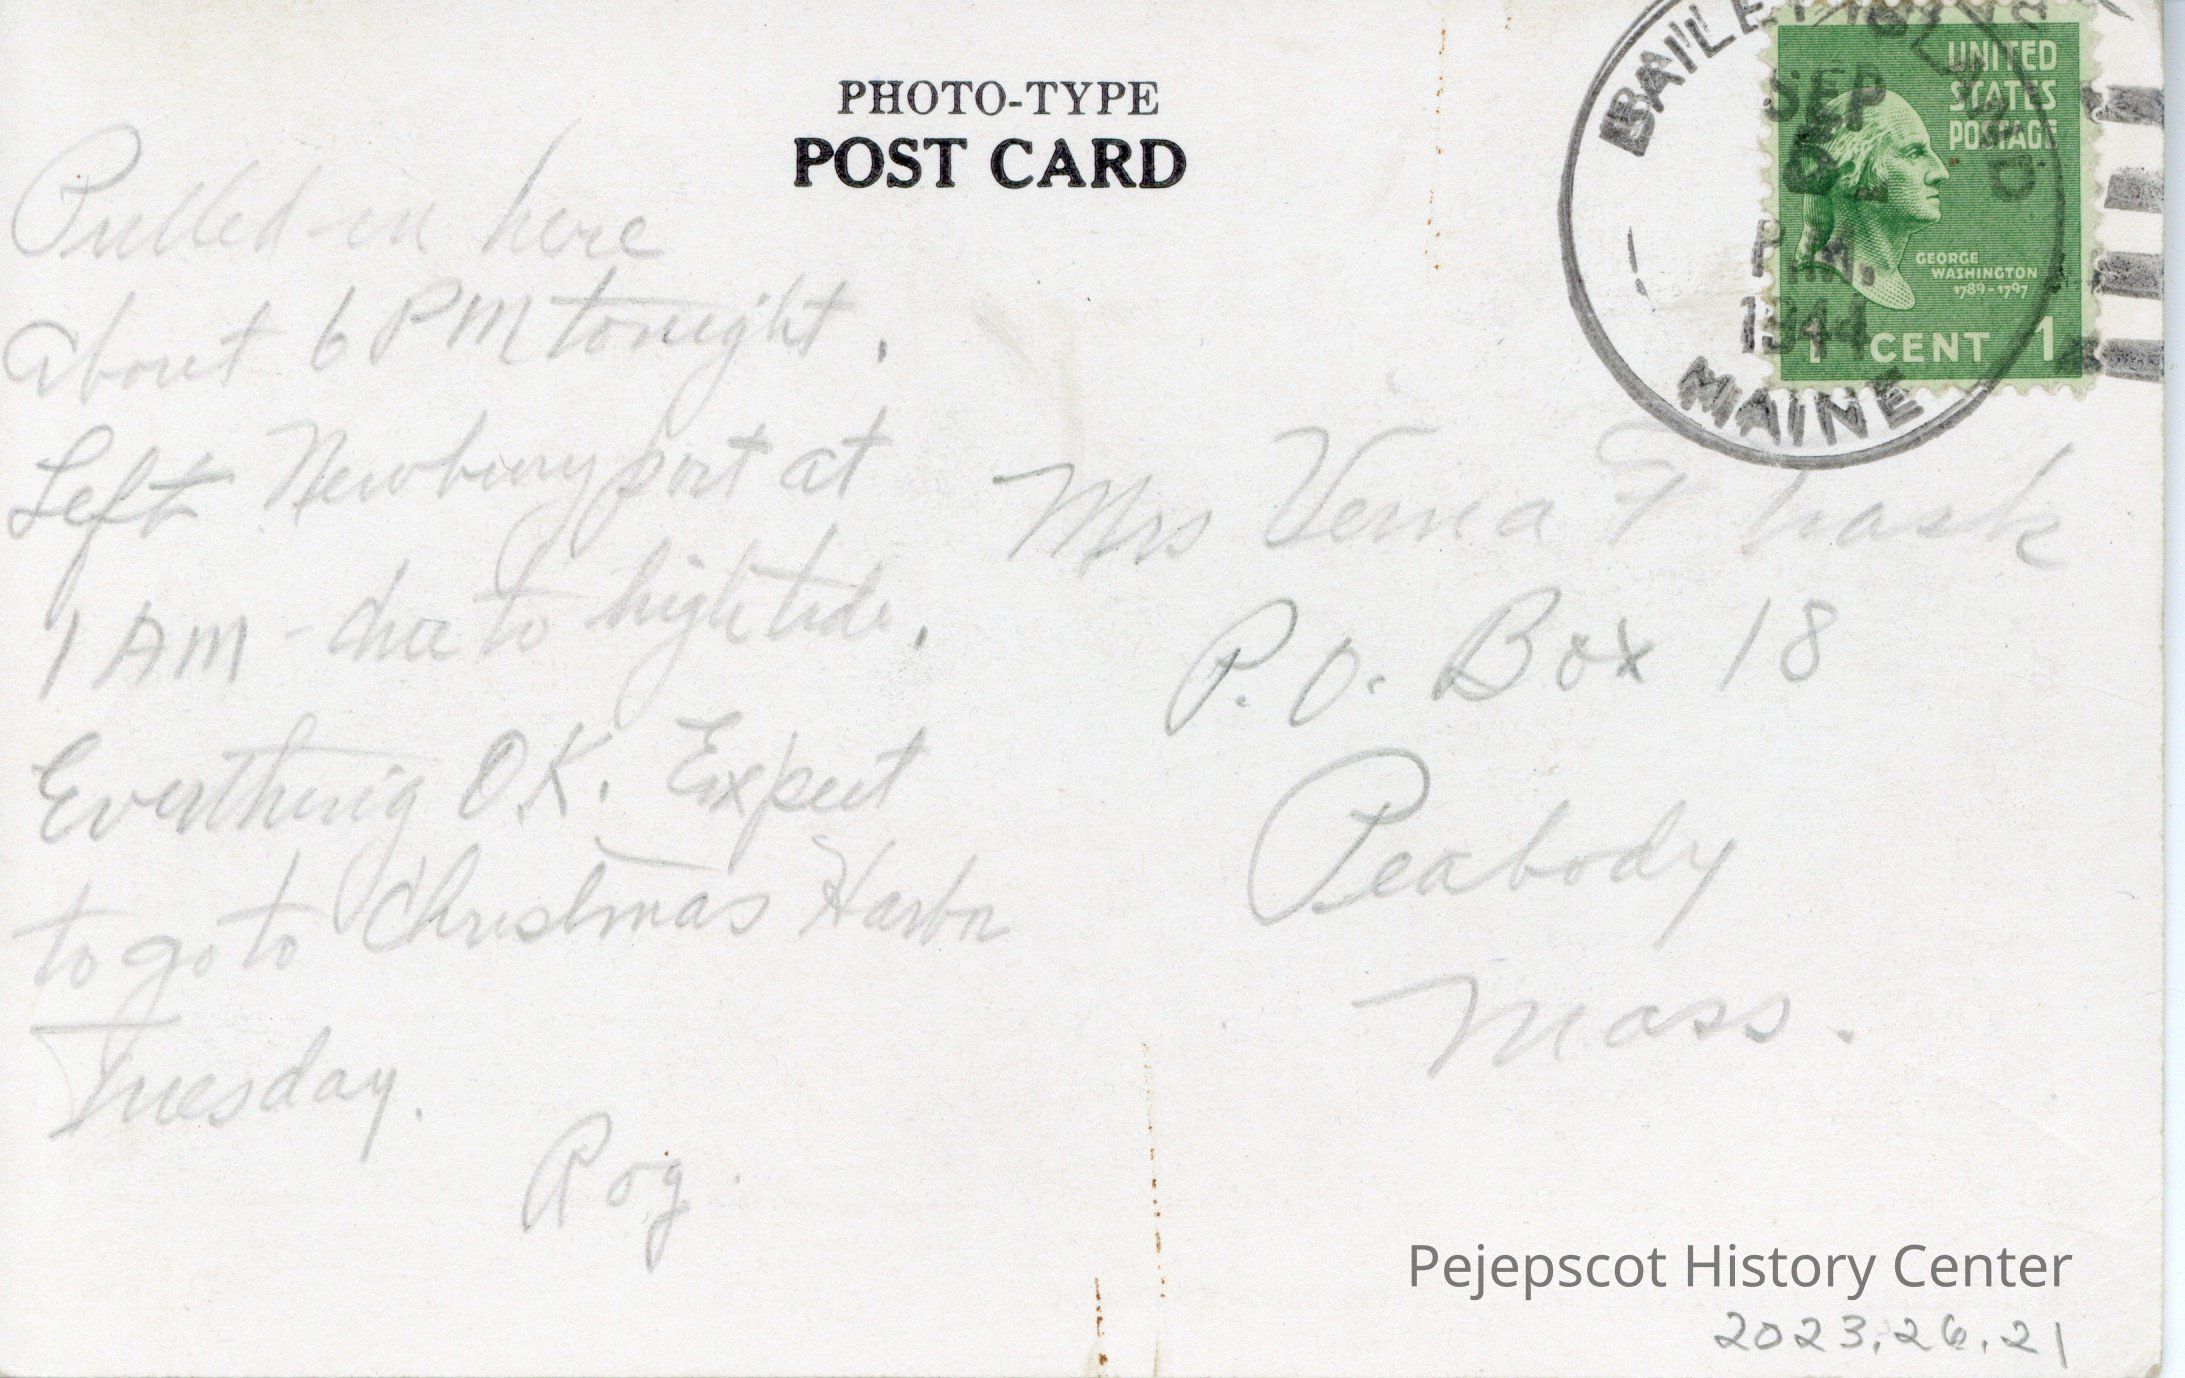 PHOTO-TYPE
POST CARD
BAILEY ISLAND
SEP
P.M.
1944
MAINE
UNITED
STATES
POSTAGE
GEORGE
WASHINGTON
1789-1797
1 CENT 1
Pulled in here
about 6 PM tonight.
Left Newburyport at
1 AM - due to high tide.
Everthing O.K. Expect
to go to Christmas Harbor
Tuesday.
Rog.
Mrs Verna
P.O. Box 18
Peabody
Mass.
Pejepscot History Center
2023.26.21